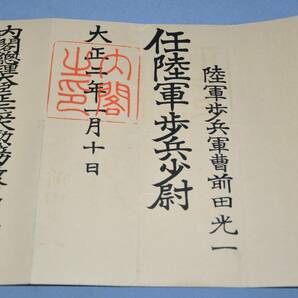 陸軍歩兵軍曹前田光一
任陸軍歩兵少尉
大正二年一月十日
内閣之印
内閣總理大臣正三位勲